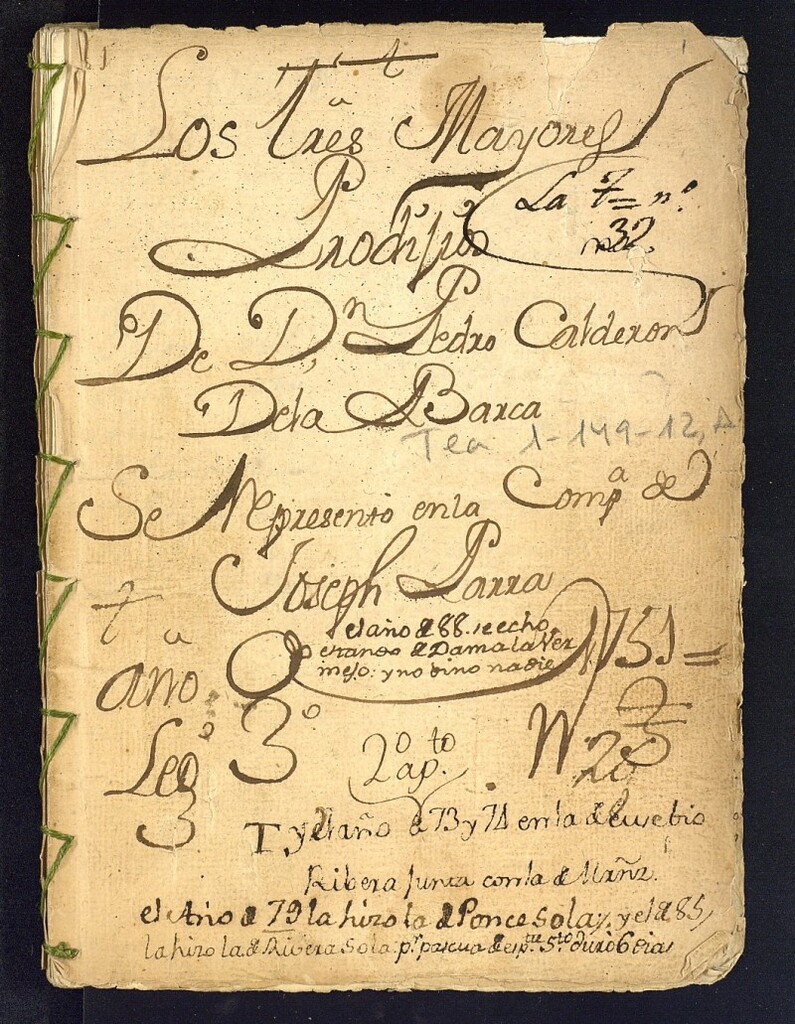 Los tres Mayores
Prodijios
La 7= nº
32.
De Dn, Pedro Calderon
Dela Barca
Tea 1-149-12, A
Se Represento en la Compª de
Joseph Parra
año
1751=
el año d 88. se echo
estando d Dama la Ver
mejo: y no bino nadie
Legº 3º
2º apto.
N
3
Y el año d 73 y 74 en la d Eusebio
Ribera Junta con la d Mrñz.
el Año d 79 la hizo la d Ponce Sola, y el d 85
la hizo la d Ribera sola: pr pascua d espt. sto duró 6 dias